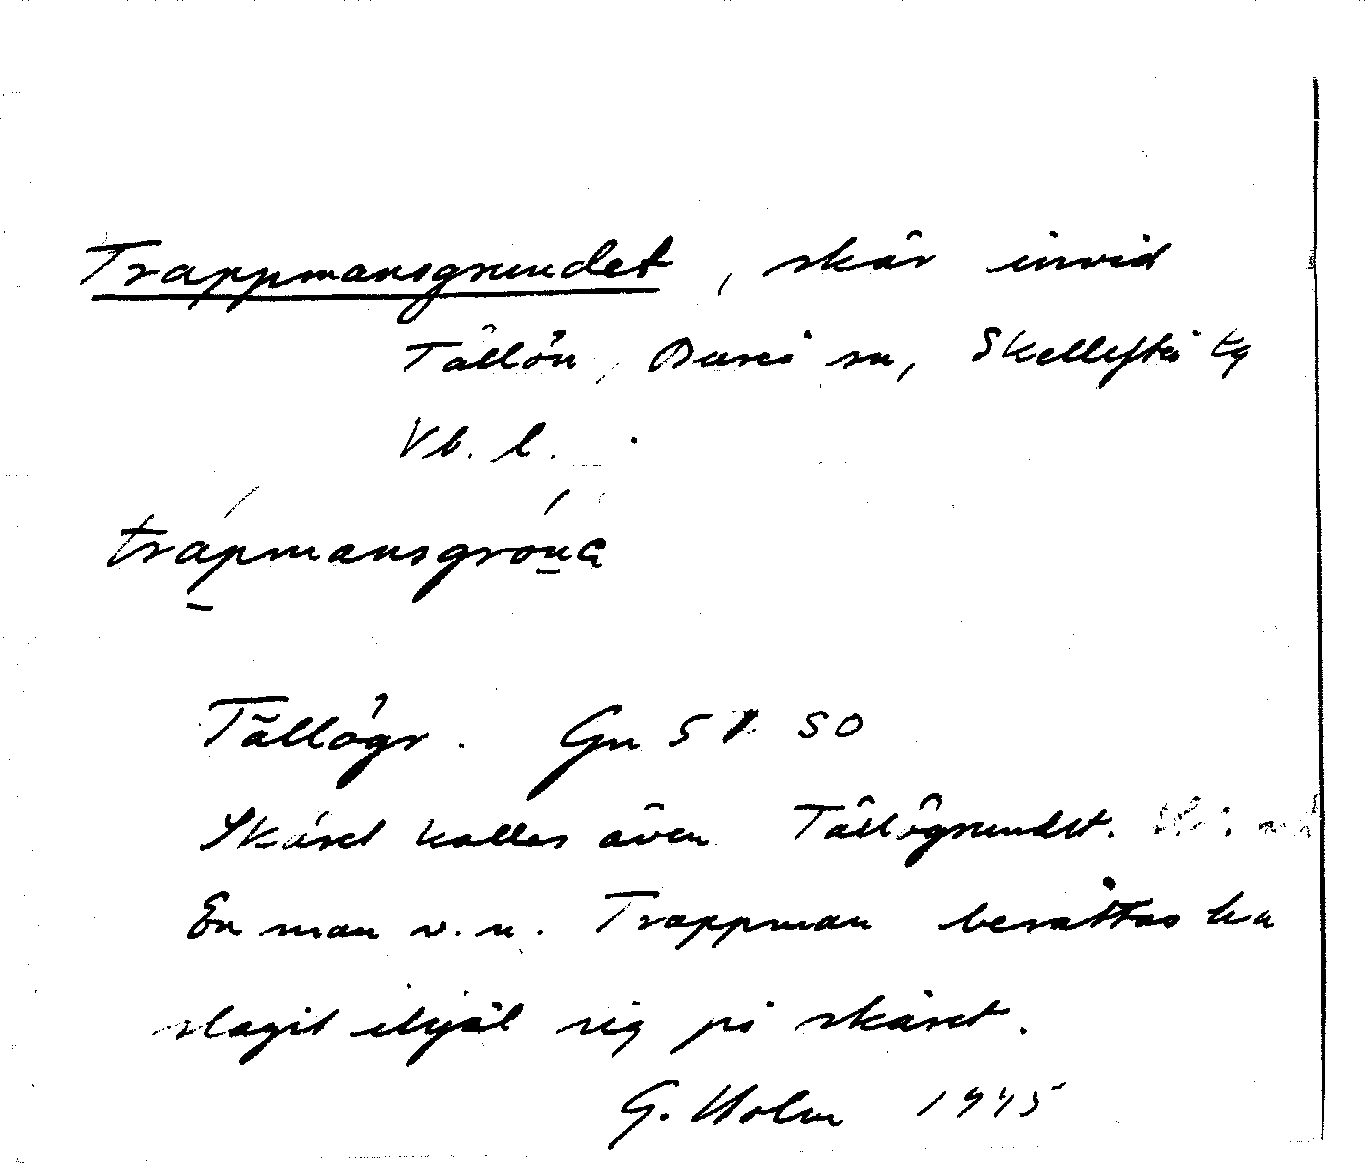 Trappmansgrundet, skär invid
Tällön, Bureå sn, Skellefteå tg
Vb. l.
trápmansgróṉa
Tällögr. Gn 51 SO
Skäret kallas även Tällögrundet.
En man v. n. Trappman berättas ha
slagit ihjäl sig på skäret.
G. Holm 1945